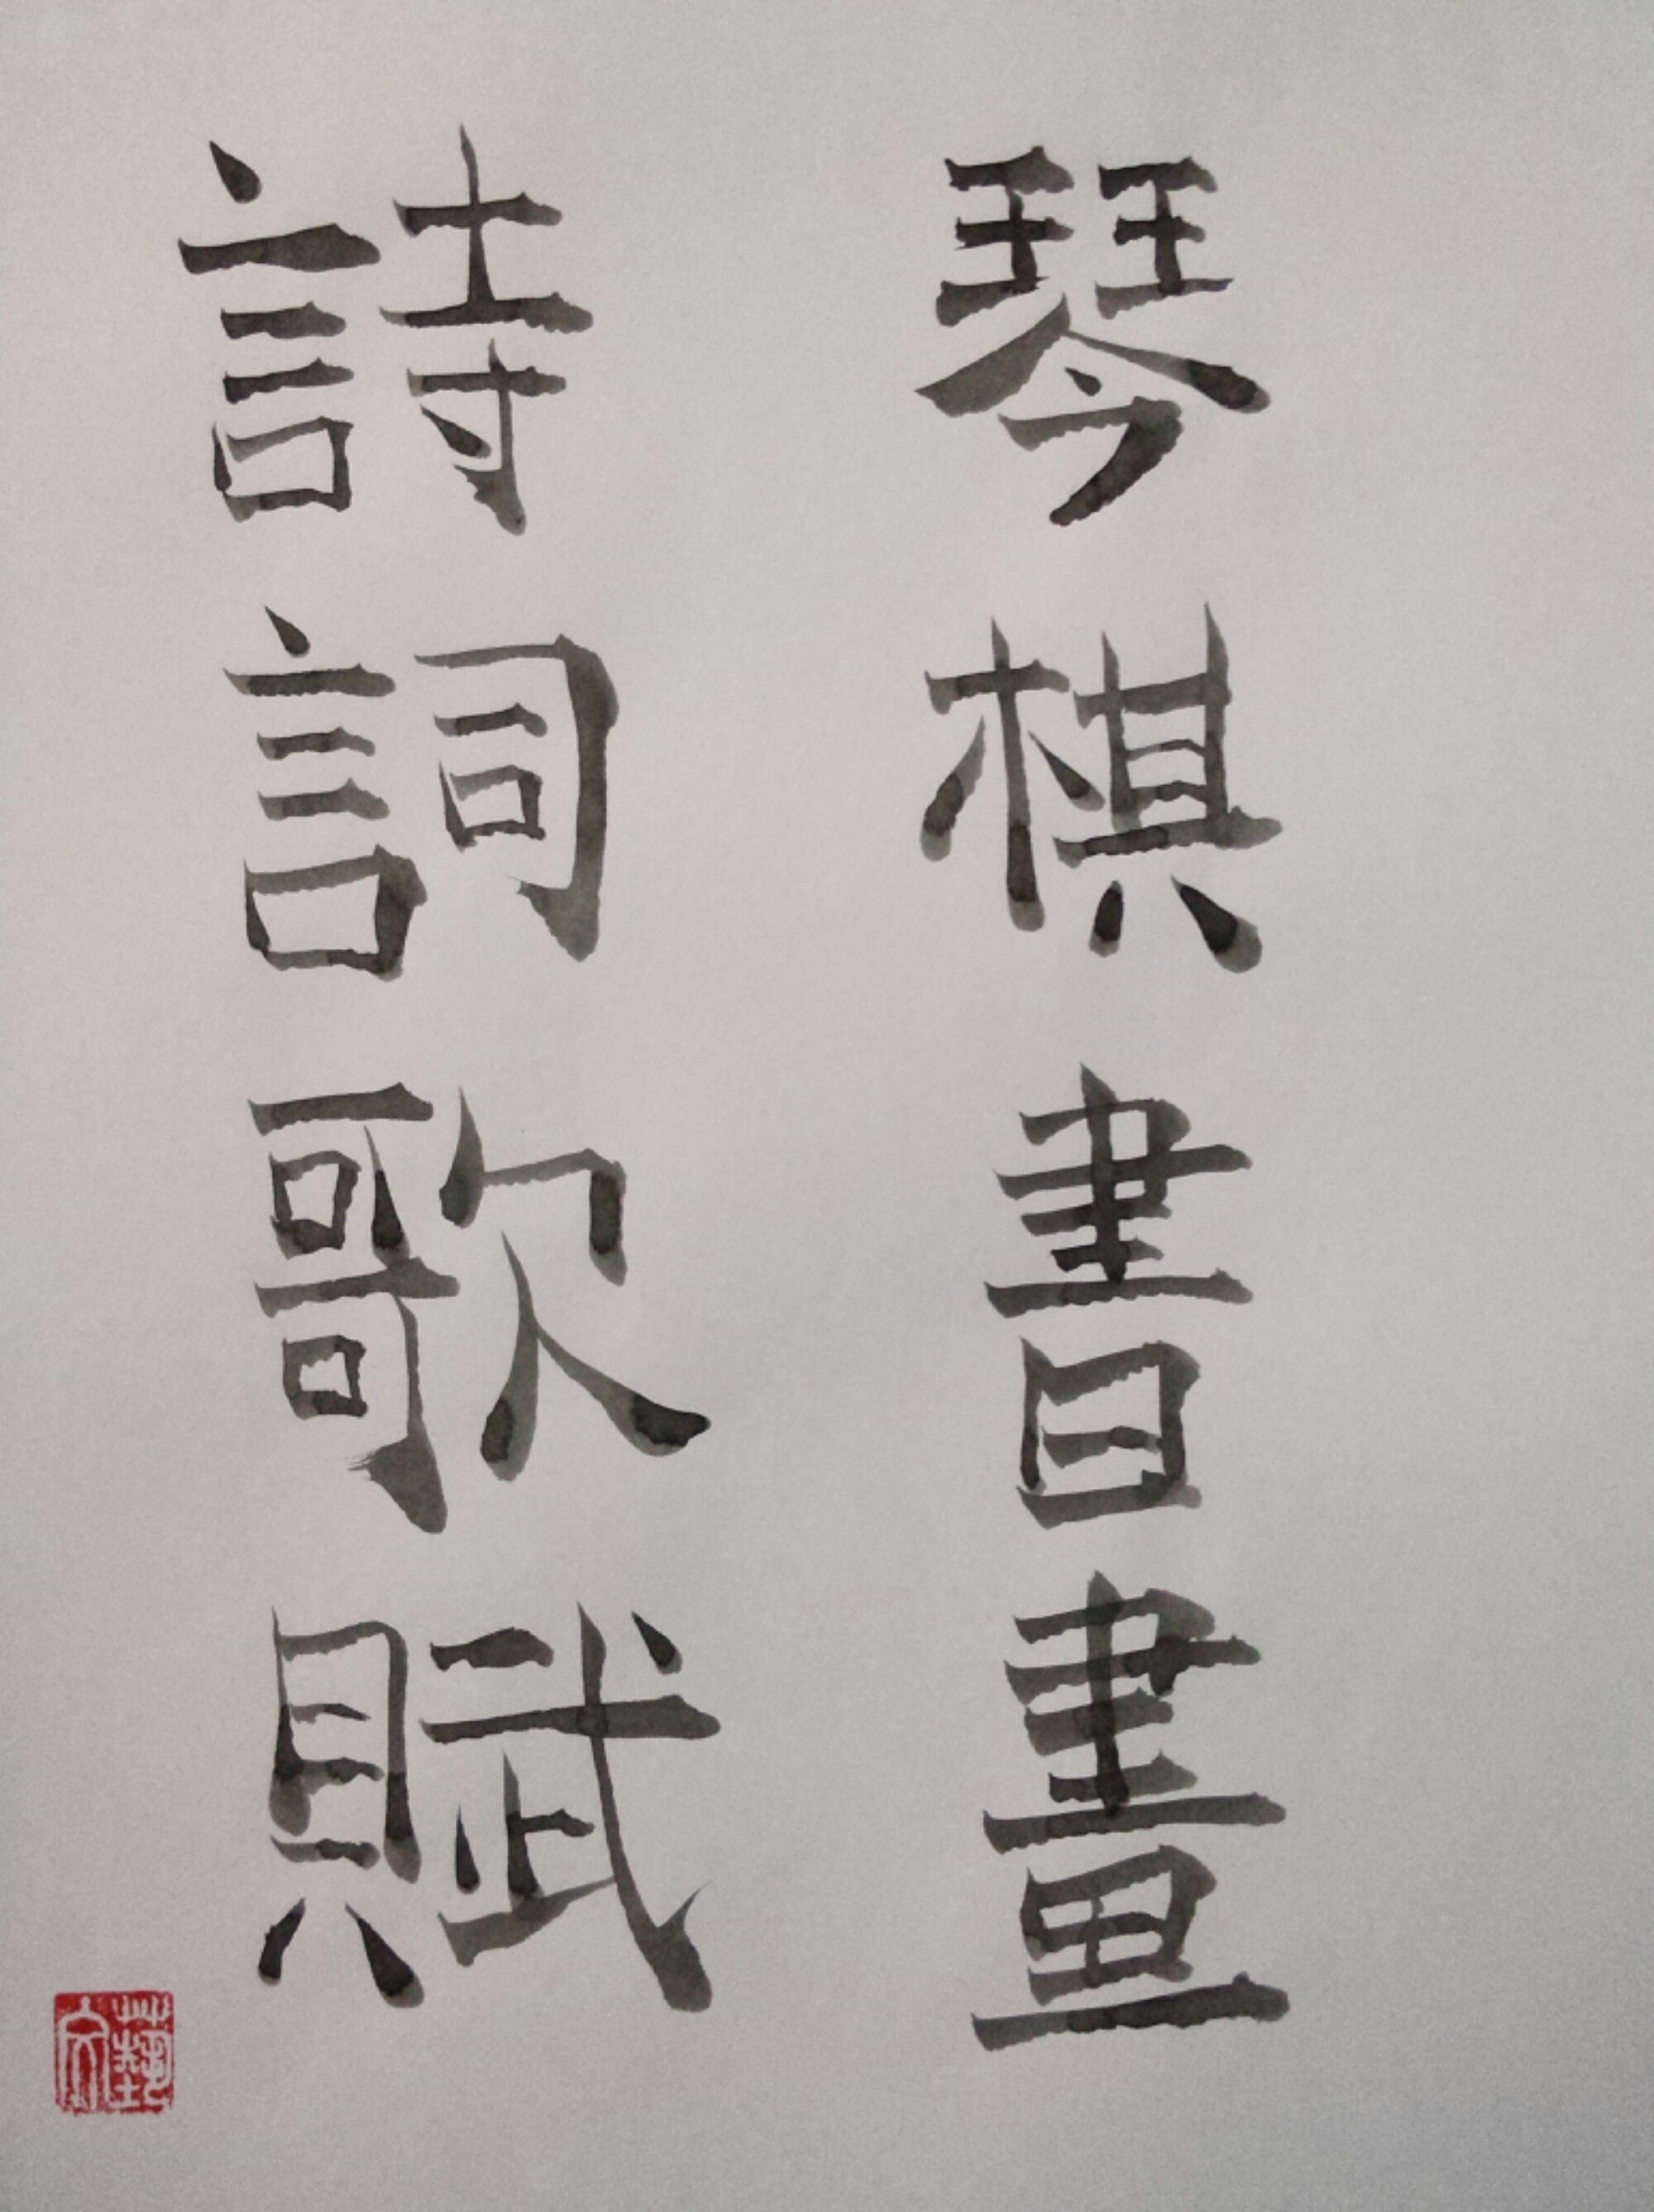 琴棋書畫
詩詞歌賦